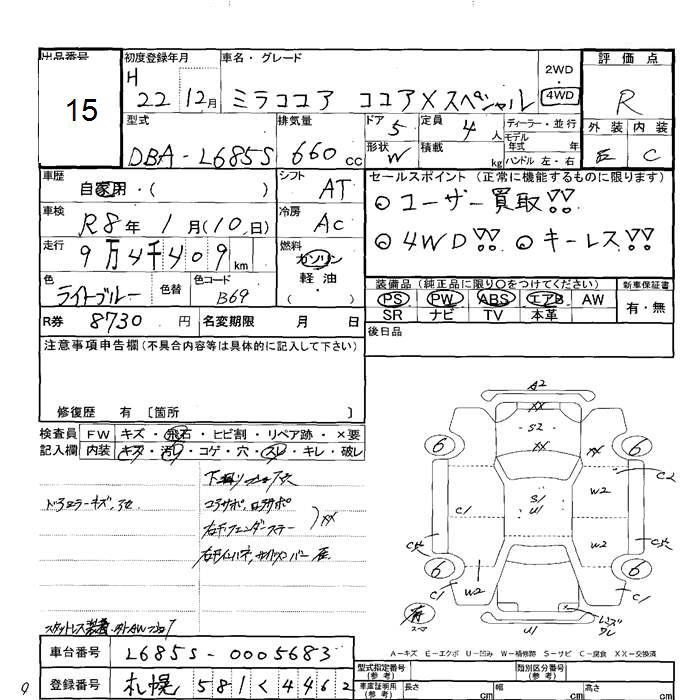 出品番号
15
初度登録年月
H 22 12月
車名・グレード
ミラココア ココアXスペシャル
2WD
・
4WD
評価点
R
外装 内装
C
型式
DBA-L685S
排気量
660 cc
ドア 5
定員 4 人
ディーラー・並行
モデル
年式 年
ハンドル 左・右
形状 W
積載 kg
車歴
自家用・( )
シフト
AT
セールスポイント (正常に機能するものに限ります)
◎ユーザー買取!!
◎4WD!! ◎キーレス!!
車検
R8年 1月(10日)
冷房
AC
走行
9万4千409 km
燃料
ガソリン
軽・油
・( )
色
ライトブルー
色替
色コード
B69
装備品 (純正品に限り○をつけてください)
新車保証書
PS PW ABS エアB AW
SR ナビ TV 本革
有・無
R券 8730 円
名変期限 月 日
後日品
注意事項申告欄 (不具合内容等は具体的に記入して下さい)
修復歴 有 〔箇所 〕
検査員 FW キズ・飛石・ヒビ割・リペア跡・×要
記入欄 内装 キズ・汚レ・コゲ・穴・スレ・キレ・破レ
A2
XX
S2
XX
XX
6
6
C2
W2
S/
U1
C1
W2
6
6
W2
C1
C1
U1
A-キズ E-エクボ U-凹み W-補修跡 S-サビ C-腐食 XX-交換済
車台番号
L685S-0005683
登録番号
札幌 581く4462
型式指定番号
(参考)
類別区分番号
(参考)
車庫証明用
(参考)
長さ cm
幅 cm
高さ cm